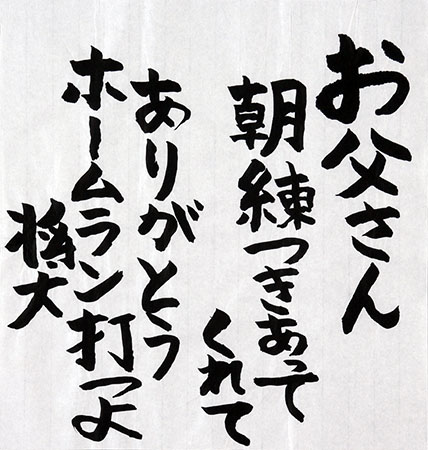 お父さん
朝練つきあって
くれて
ありがとう
ホームラン打つよ
将大